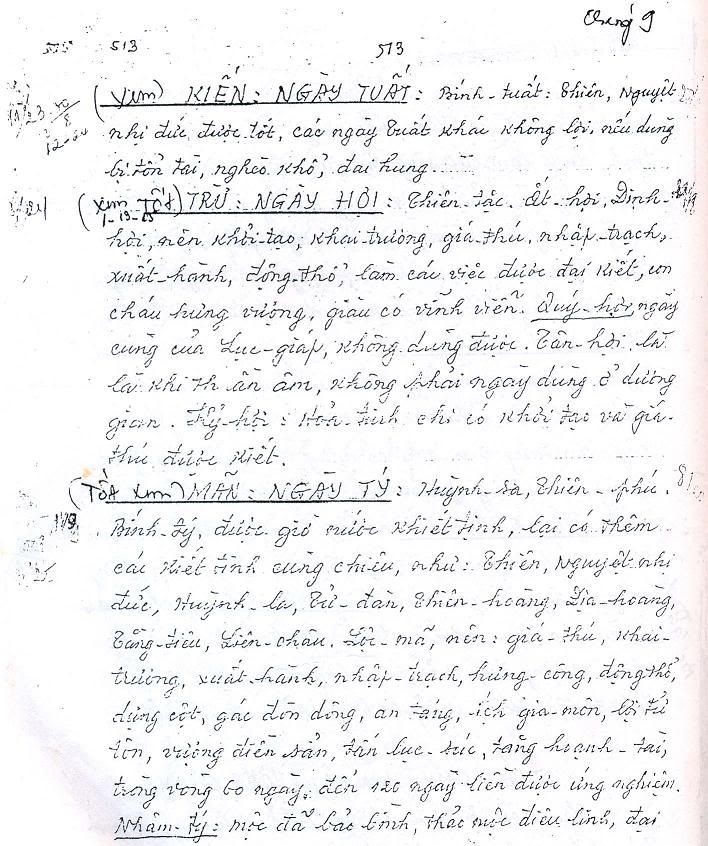 tháng 9
513 513
(xem) KIẾN: NGÀY TUẤT: Bính-tuất: Thiên, Nguyệt
nhị đức được tốt, các ngày Tuất khác không lợi, nếu dùng
bị tổn tài, nghèo khổ, đại hung
(xem TỐT) TRỪ: NGÀY HỢI: Thiên-tặc. Ất-hợi, Đinh-
hợi, nên khởi-tạo, khai-trương, giá-thú, nhập-trạch,
xuất-hành, động-thổ, làm các việc được đại kiết, con
cháu hưng vượng, giàu có vĩnh viễn. Quý-hợi, ngày
cùng của Lục-giáp, không dùng được. Tân-hợi là
là khí th ần âm, không phải ngày dùng ở dương
gian. Kỷ-hợi: Hỏa-tinh chỉ có khởi tạo và giá-
thú được kiết.
(TỐT xem) MÃN: NGÀY TÝ: Huỳnh-sa, Thiên-phú.
Bính-tý, được giờ nước khiết tịnh, lại có thêm
các kiết tinh cùng chiếu, như: Thiên, Nguyệt nhị
đức, Huỳnh-la, Tử-đàn, Thiên-hoàng, Địa-hoàng,
Tằng-tiêu, Liên-châu. Lộc-mã, nên: giá-thú, khai-
trương, xuất-hành, nhập-trạch, hưng-công, động-thổ,
dựng cột, gác đòn dông, an táng, ích gia-môn, lợi tử
tôn, vượng điền sản, tấn lục-súc, tăng hoạnh-tài,
trong vòng 60 ngày, đến 120 ngày liền được ứng nghiệm.
Nhâm-tý: mộc đã bảo bình, thảo mộc điêu linh, đại